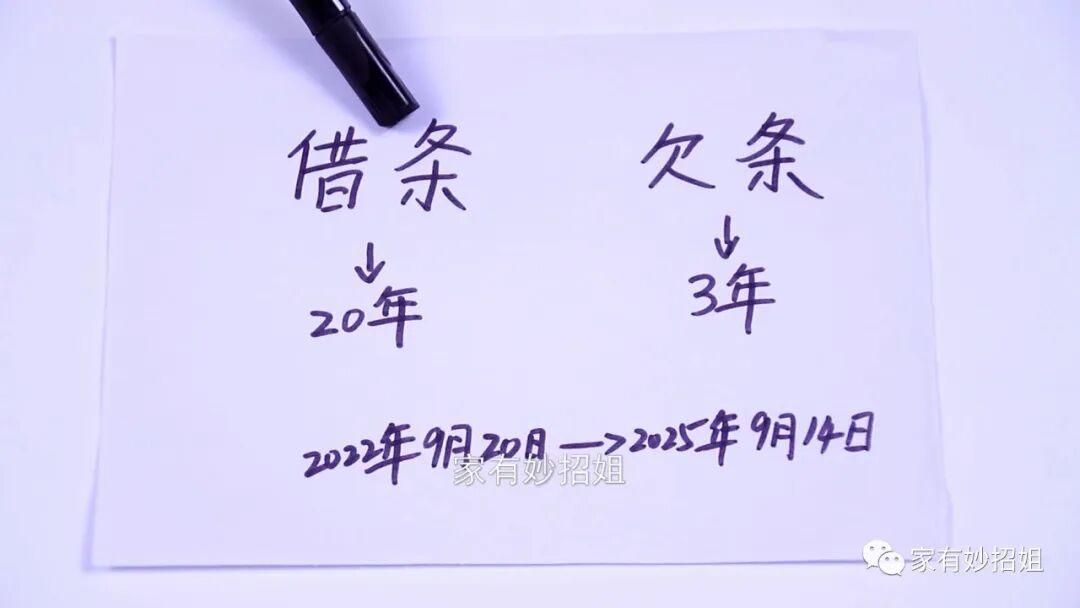 借条 欠条
↓ ↓
20年 3年
2022年9月20日→2025年9月14日
家有妙招姐
家有妙招姐